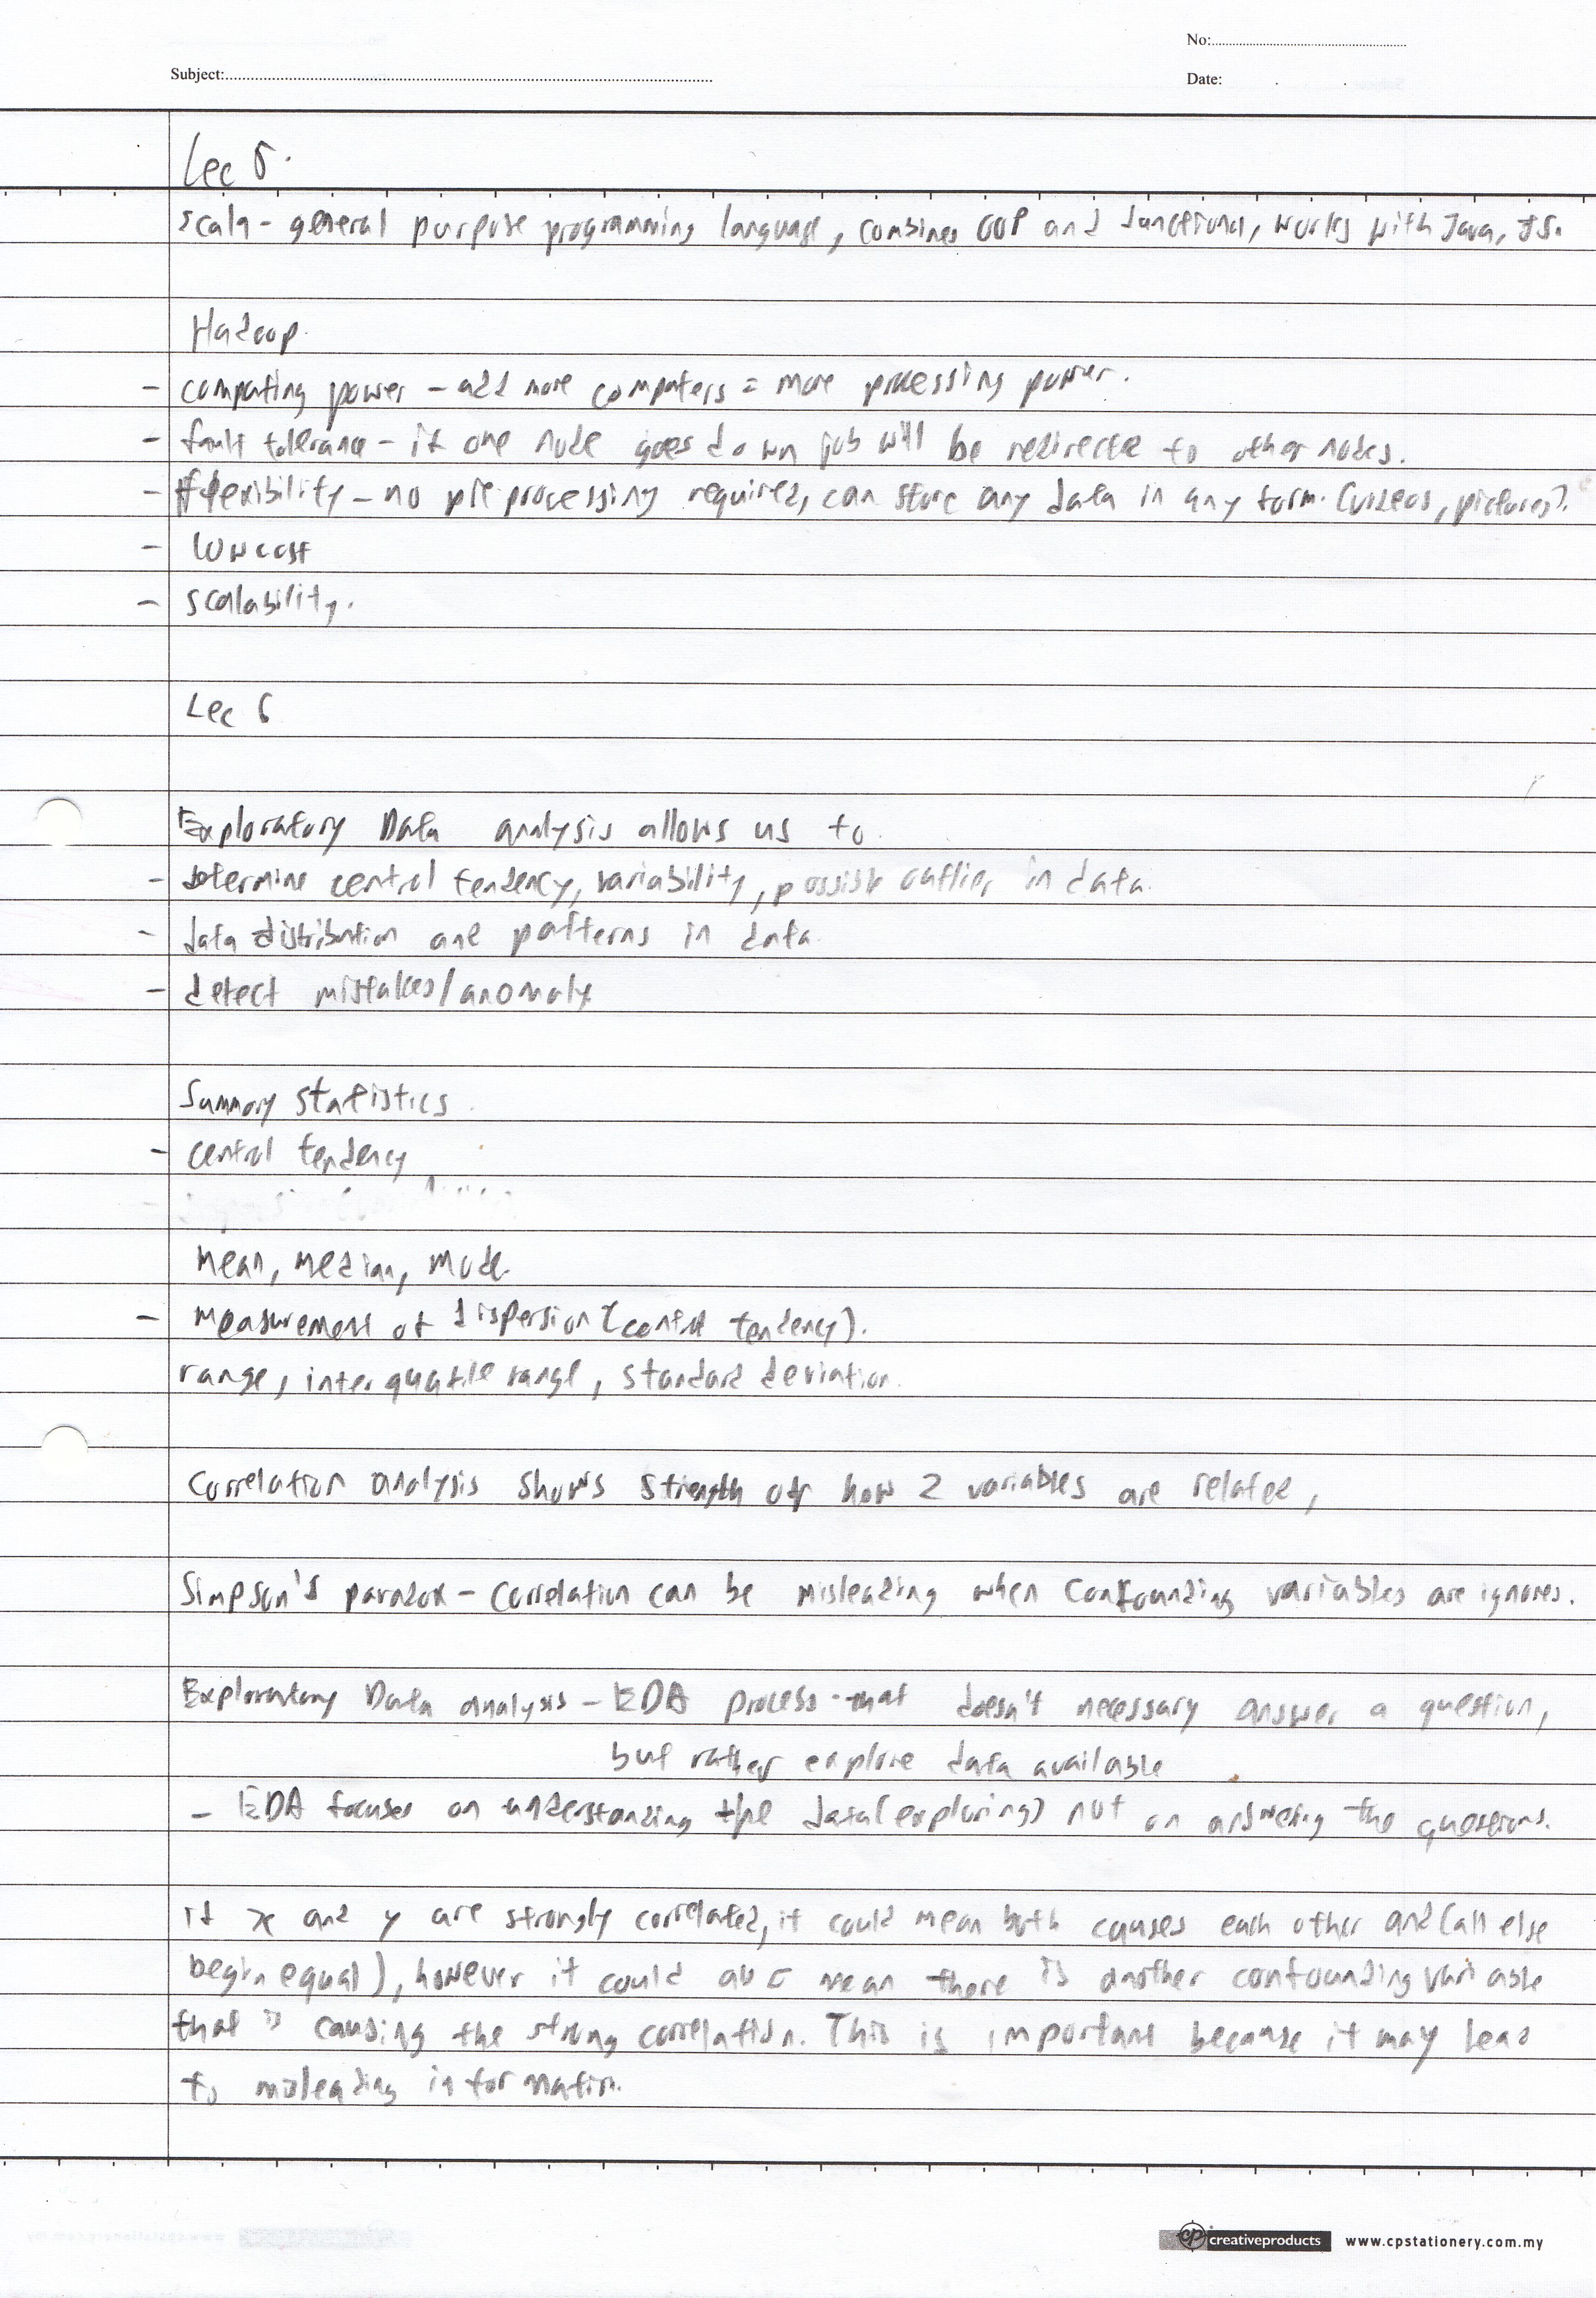 No:
Subject:
Date:
Lec 5.
scala - general purpose programming language, combines OOP and functional, works with Java, JS.
Hadoop.
- computing power - add more computers = more processing power.
- fault tolerance - if one node goes down job will be redirected to other nodes.
- flexibility - no pre processing required, can store any data in any form. (videos, pictures).
- low cost
- scalability.
Lec 6
Exploratory Data analysis allows us to
- determine central tendency, variability, possible outlier in data.
- data distribution and patterns in data.
- detect mistakes/anomaly
Summary statistics.
- central tendency
mean, median, mode
- measurement of dispersion (central tendency).
range, inter quatile range, standard deviation.
Correlation analysis shows strength of how 2 variables are related,
Simpson's paradox - correlation can be misleading when confounding variables are ignored.
Exploratory Data analysis - EDA process that doesn't necessary answer a question,
but rather explore data available
- EDA focuses on understanding the data (exploring) not on answering the questions.
if x and y are strongly correlated, it could mean both causes each other and (all else
begin equal), however it could also mean there is another confounding variable
that is causing the strong correlation. This is important because it may lead
to misleading information.
cp creativeproducts www.cpstationery.com.my